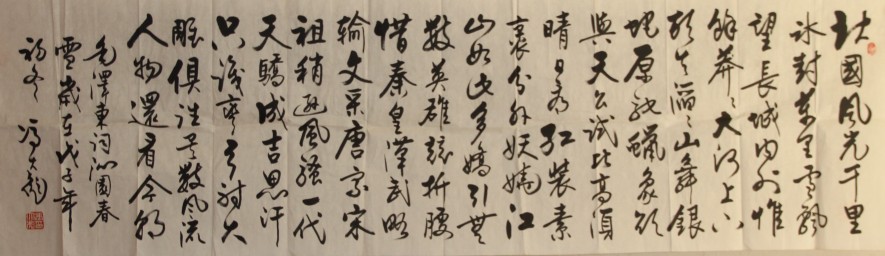 北國風光千里
冰封萬里雪飄
望長城内外惟
餘莽莽大河上下
頓失滔滔山舞銀
蛇原馳蠟象欲
與天公試比高須
晴日看紅裝素
裹分外妖嬈江
山如此多嬌引無
數英雄競折腰
惜秦皇漢武略
輸文采唐宗宋
祖稍遜風騷一代
天驕成吉思汗
只識彎弓射大
雕俱往矣數風流
人物還看今朝
毛澤東詞沁園春
雪歲在戊子年
初冬 馮